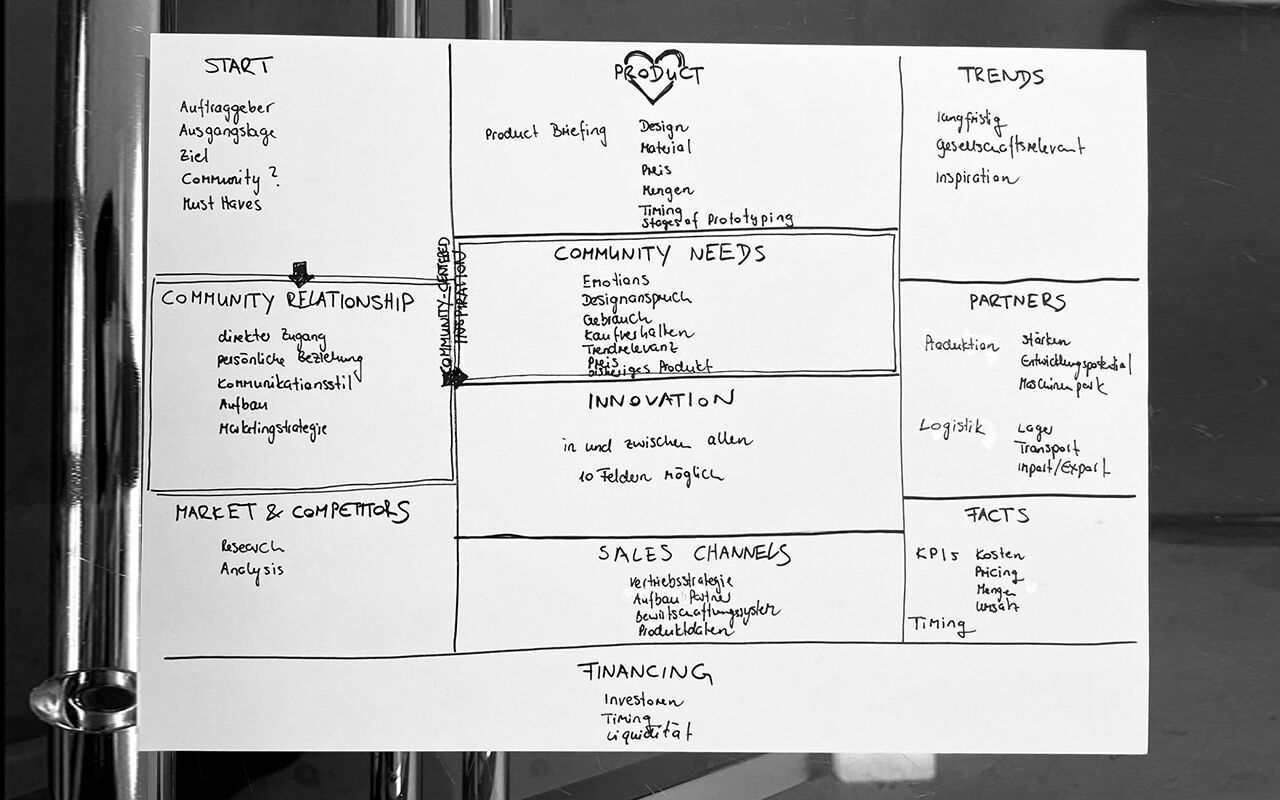 START
Auftraggeber
Ausgangslage
Ziel
Community?
Must Haves
COMMUNITY RELATIONSHIP
direkter Zugang
persönliche Beziehung
Kommunikationsstil
Aufbau
Marketingstrategie
MARKET & COMPETITORS
Research
Analysis
COMMUNITY-CENTERED
INSPIRATION
PRODUCT
Product Briefing
Design
Material
Preis
Mengen
Timing
Stages of Prototyping
COMMUNITY NEEDS
Emotions
Designanspruch
Gebrauch
Kaufverhalten
Trendrelevanz
Preis
bisheriges Produkt
INNOVATION
in und zwischen allen
10 Feldern möglich
SALES CHANNELS
Vertriebsstrategie
Aufbau Partner
Bewirtschaftungssystem
Produktdaten
TRENDS
langfristig
gesellschaftsrelevant
Inspiration
PARTNERS
Produktion
Stärken
Entwicklungspotential
Maschinenpark
Logistik
Lager
Transport
Import/Export
FACTS
KPIs
Kosten
Pricing
Mengen
Umsatz
Timing
FINANCING
Investoren
Timing
Liquidität